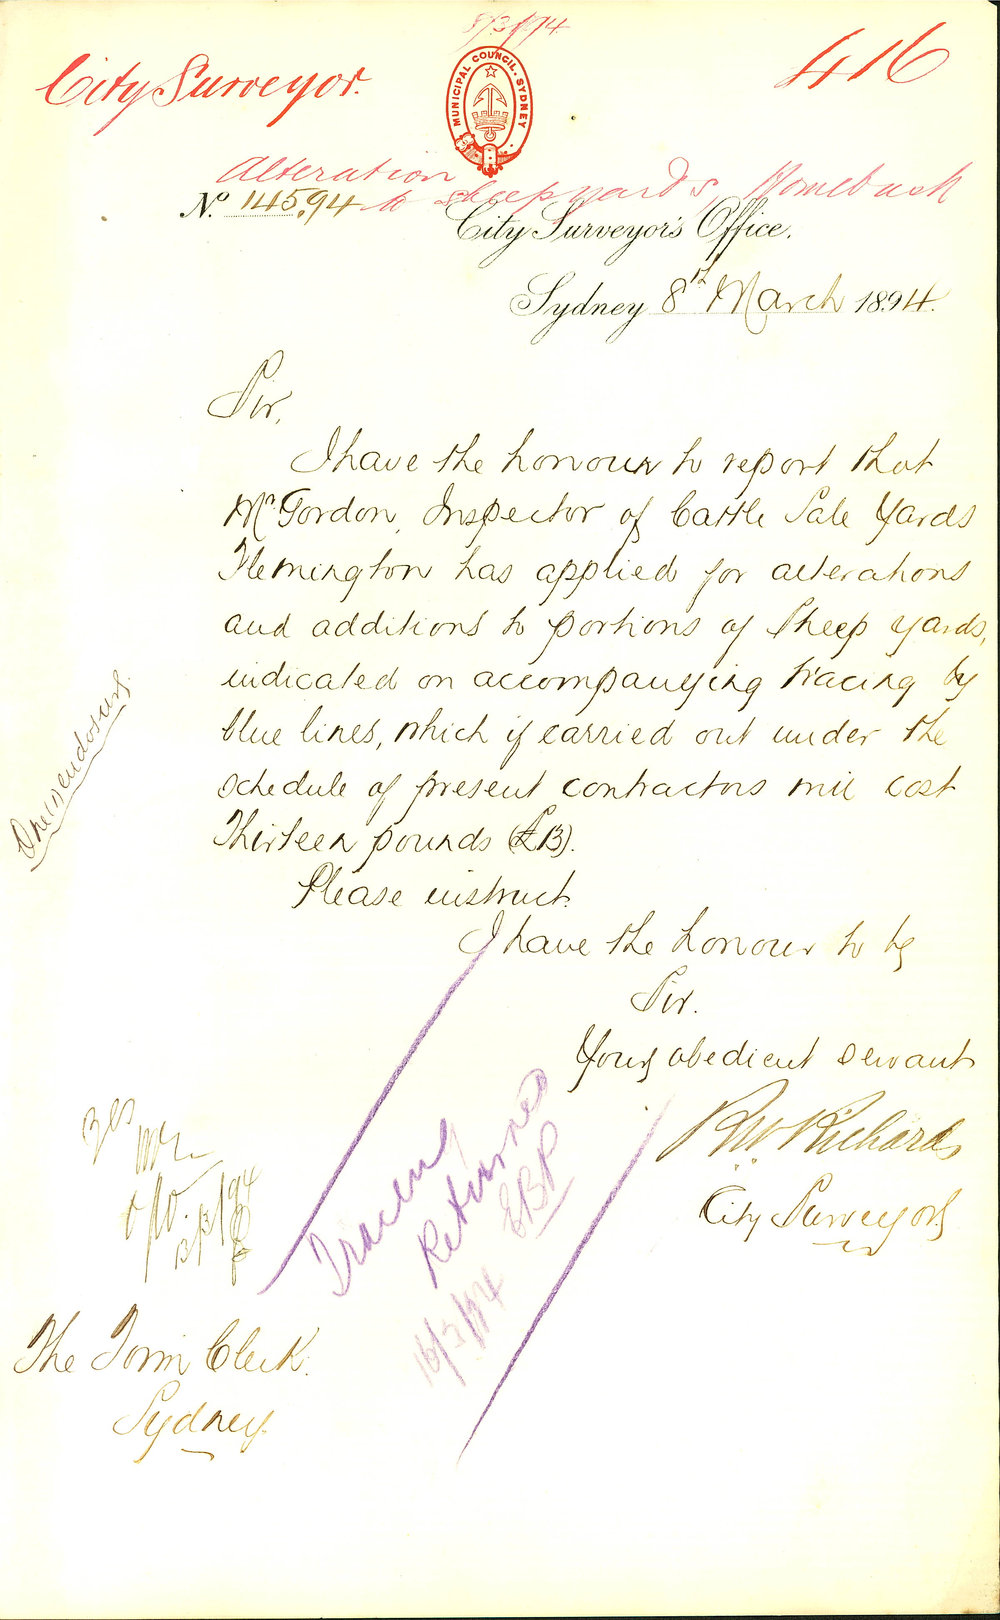 8/3/94
City Surveyor.
416
MUNICIPAL COUNCIL. SYDNEY
Alteration
to Sheep yards, Homebush
No. 145.94
City Surveyor's Office.
Sydney 8th March 1894.
Sir,
I have the honour to report that
Mr Gordon, Inspector of Cattle Sale Yards
Flemington has applied for alterations
and additions to portions of Sheep yards,
indicated on accompanying tracing by
blue lines, which if carried out under the
schedule of present contractors will cost
Thirteen pounds (£13).
Please instruct.
One enclosure.
I have the honour to be
Sir.
Your obedient servant
RW Richards
City Surveyor
Yes
Tracing
Returned
EBP
16/3/94
The Town Clerk.
Sydney.